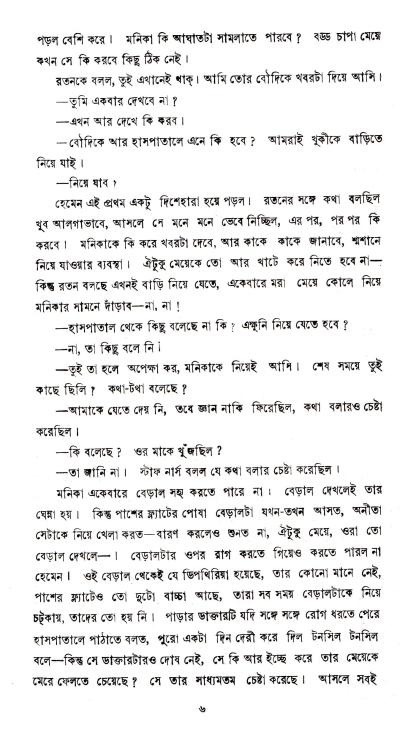 পড়ল বেশি করে। মনিকা কি আঘাতটা সামলাতে পারবে? বড্ড চাপা মেয়ে
কখন সে কি করবে কিছু ঠিক নেই।
রতনকে বলল, তুই এখানেই থাক্। আমি তোর বৌদিকে খবরটা দিয়ে আসি।
—তুমি একবার দেখবে না?
—এখন আর দেখে কি করব।
—বৌদিকে আর হাসপাতালে এনে কি হবে? আমরাই খুকীকে বাড়িতে
নিয়ে যাই।
—নিয়ে যাব?
হেমেন এই প্রথম একটু দিশেহারা হয়ে পড়ল। রতনের সঙ্গে কথা বলছিল
খুব আলগাভাবে, আসলে সে মনে মনে ভেবে নিচ্ছিল, এর পর, পর পর কি
করবে। মনিকাকে কি করে খবরটা দেবে, আর কাকে কাকে জানাবে, শ্মশানে
নিয়ে যাওয়ার ব্যবস্থা। ঐটুকু মেয়েকে তো আর খাটে করে নিতে হবে না—
কিন্তু রতন বলছে এখনই বাড়ি নিয়ে যেতে, একেবারে মরা মেয়ে কোলে নিয়ে
মনিকার সামনে দাঁড়াব—না, না!
—হাসপাতাল থেকে কিছু বলেছে না কি? এক্ষুনি নিয়ে যেতে হবে?
—না, তা কিছু বলে নি।
—তুই তা হলে অপেক্ষা কর, মনিকাকে নিয়েই আসি। শেষ সময়ে তুই
কাছে ছিলি? কথা-টথা বলেছে?
—আমাকে যেতে দেয় নি, তবে জ্ঞান নাকি ফিরেছিল, কথা বলারও চেষ্টা
করেছিল।
—কি বলেছে? ওর মাকে খুঁজছিল?
—তা জানি না। স্টাফ নার্স বলল যে কথা বলার চেষ্টা করেছিল।
মনিকা একেবারে বেড়াল সহ্য করতে পারে না। বেড়াল দেখলেই তার
ঘেন্না হয়। কিন্তু পাশের ফ্ল্যাটের পোষা বেড়ালটা যখন-তখন আসত, অনীতা
সেটাকে নিয়ে খেলা করত—বারণ করলেও শুনত না, ঐটুকু মেয়ে, ওরা তো
বেড়াল দেখলে—। বেড়ালটার ওপর রাগ করতে গিয়েও করতে পারল না
হেমেন। ওই বেড়াল থেকেই যে ডিপথিরিয়া হয়েছে, তার কোনো মানে নেই,
পাশের ফ্ল্যাটেও তো দুটো বাচ্চা আছে, তারা সব সময় বেড়ালটাকে নিয়ে
চট্‌কায়, তাদের তো হয় নি। পাড়ার ডাক্তারটি যদি সঙ্গে সঙ্গে রোগ ধরতে পেরে
হাসপাতালে পাঠাতে বলত, পুরো একটা দিন দেরী করে দিল টনসিল টনসিল
বলে—কিন্তু সে ডাক্তারটারও দোষ নেই, সে কি আর ইচ্ছে করে তার মেয়েকে
মেরে ফেলতে চেয়েছে? সে তার সাধ্যমতম চেষ্টা করেছে। আসলে সবই
৬